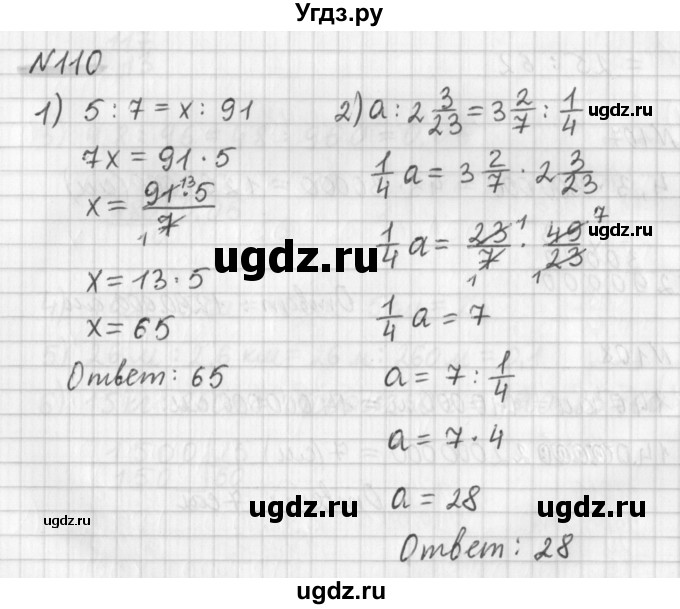 Угдз.ру
N110
1) 5 : 7 = x : 91
7x = 91 · 5
x = 91 · 5 / 7 13 1
x = 13 · 5
x = 65
Ответ: 65
2) a : 2 3/23 = 3 2/7 : 1/4
1/4 a = 3 2/7 · 2 3/23
1/4 a = 23/7 · 49/23 1 7 1 1
1/4 a = 7
a = 7 : 1/4
a = 7 · 4
a = 28
Ответ: 28
ugdz.ru
ugdz.ru
ugdz.ru
ugdz.ru
ugdz.ru
ugdz.ru
ugdz.ru
ugdz.ru